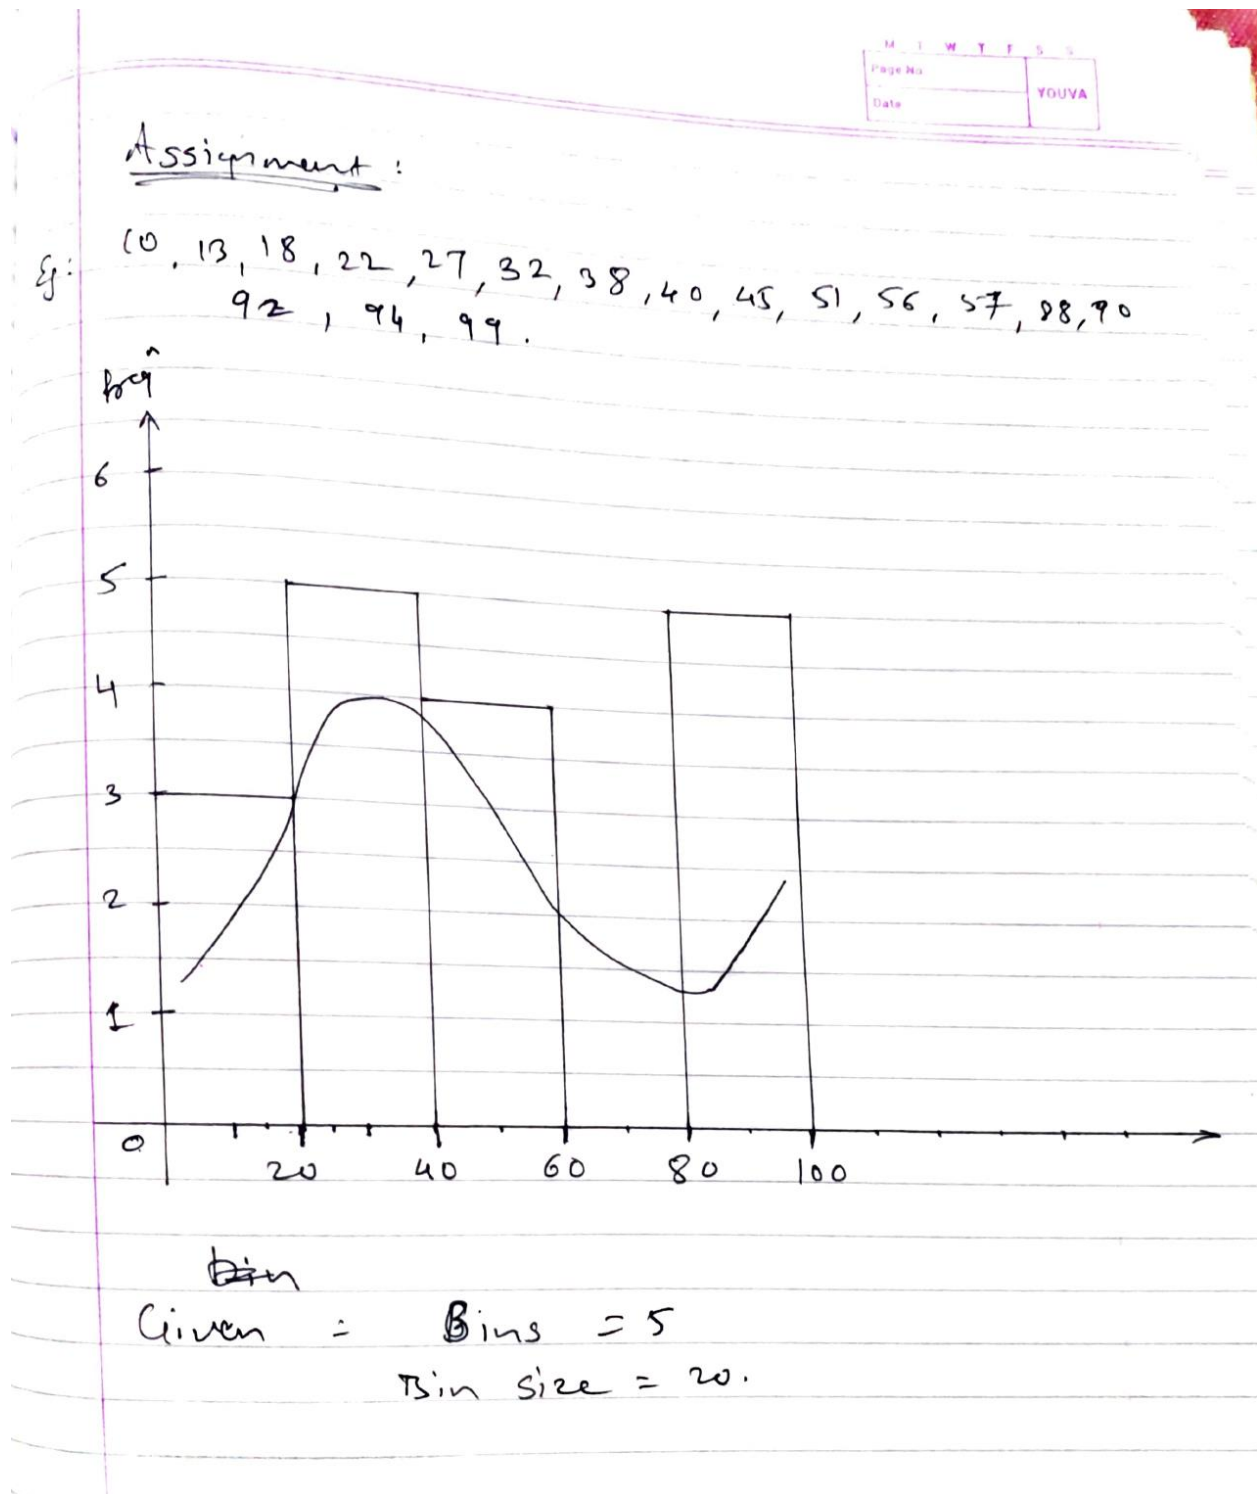 M T W T F S S
Page No
YOUVA
Date
Assignment :
Eg: 10, 13, 18, 22, 27, 32, 38, 40, 45, 51, 56, 57, 88, 90
92, 94, 99.
6
5
4
3
2
1
0
20 40 60 80 100
Given : Bins = 5
Bin size = 20.